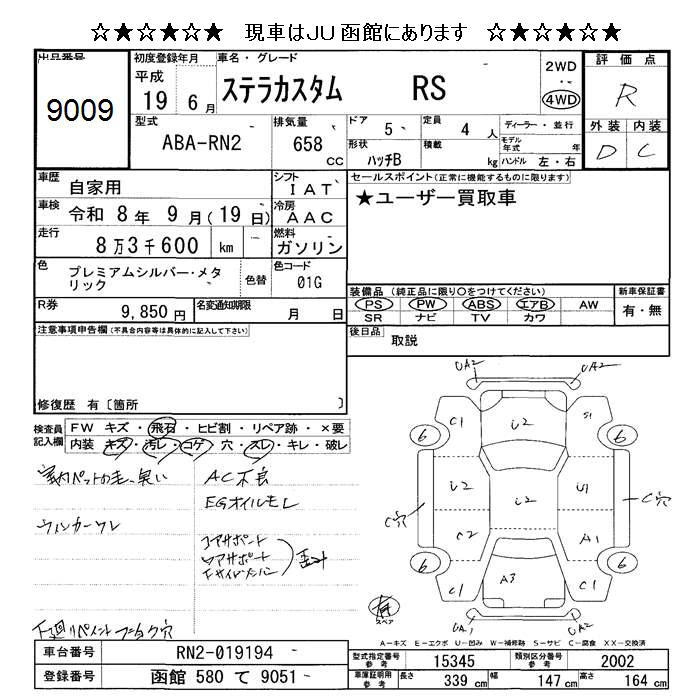 ☆★☆★☆★ 現車はJU函館にあります ☆★☆★☆★
出品番号 9009
初度登録年月 平成 19 6月
車名・グレード ステラカスタム RS
2WD 4WD
評価点 R
外装 内装
D C
型式 ABA-RN2
排気量 658 cc
ドア 5
定員 4 人
形状 ハッチB
積載 kg
ディーラー・並行
モデル年式 年
ハンドル 左・右
車歴 自家用
シフト IAT
セールスポイント(正常に機能するものに限ります)
★ユーザー買取車
車検 令和 8年 9月(19日)
冷房 AAC
走行 8万3千600 km
燃料 ガソリン
色 プレミアムシルバー・メタリック
色替
色コード 01G
装備品(純正品に限り○をつけてください)
新車保証書
PS PW ABS エアB AW
有・無
SR ナビ TV カワ
R券 9,850円
名変通知期限 月 日
後日品 取説
注意事項申告欄(不具合内容等は具体的に記入して下さい)
修復歴 有〔箇所 〕
検査員記入欄
FW キズ・飛石・ヒビ割・リペア跡・×要
内装 キズ・汚レ・コゲ・穴・スレ・キレ・破レ
室内ペットの毛、臭い
AC不良
EGオイルモレ
ウィンカーワレ
コアサポート
下廻リペイント
UA2 UA2
C1 U2 S1
6 6
U2 U2 U1
C穴 C穴
C2 A1
6 6
C1 A3 C1
UA1 UA2
有 スペア
A-キズ E-エクボ U-凹み W-補修跡 S-サビ C-腐食 XX-交換済
車台番号 RN2-019194
登録番号 函館 580 て 9051
型式指定番号 参考 15345
類別区分番号 参考 2002
車庫証明用 参考 長さ 339 cm 幅 147 cm 高さ 164 cm